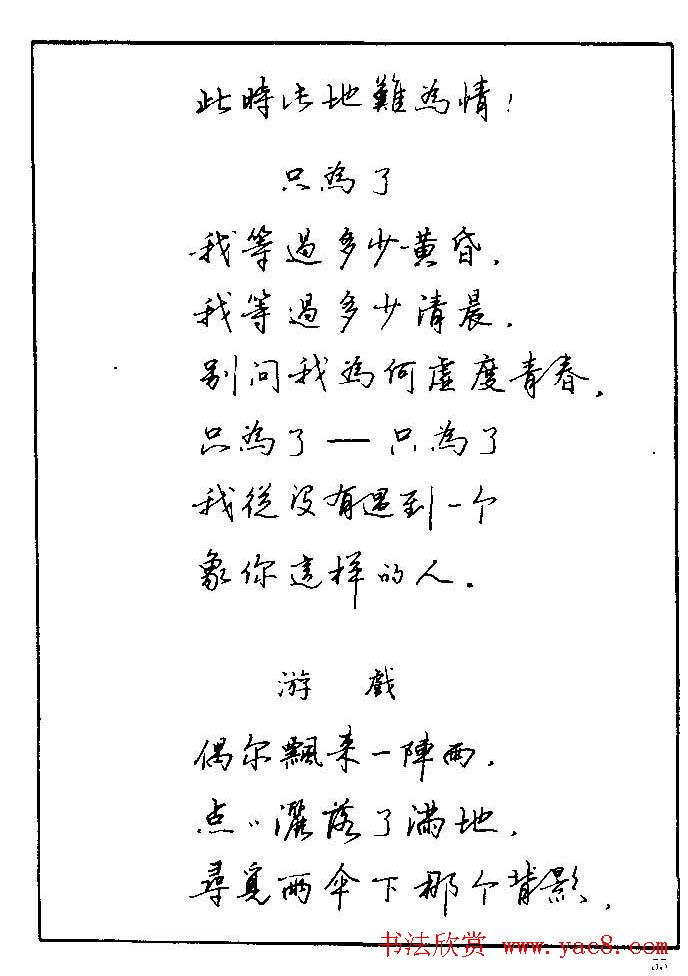 此時此地難為情！
只為了
我等過多少黄昏，
我等過多少清晨，
别问我為何虚度青春，
只為了——只為了
我從没有遇到一个
象你这样的人。
游戲
偶尔飄来一陣雨，
点〃灑落了满地，
尋覓雨伞下那个背影，
书法欣赏 www.yac8.com
55